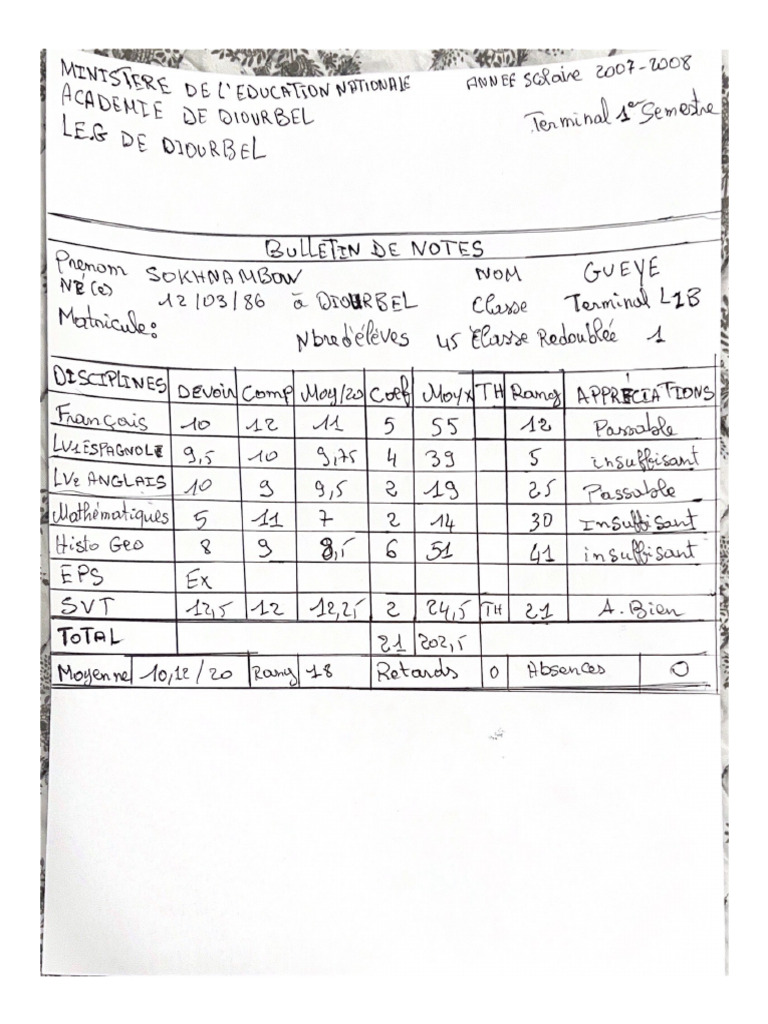 MINISTERE DE L'EDUCATION NATIONALE ANNEE Scolaire 2007-2008
ACADEMIE DE DIOURBEL Terminal 1er Semestre
L.E.G DE DIOURBEL
BULLETIN DE NOTES
Prenom SOKHNA MBOW NOM GUEYE
NÉ(e) 12/03/86 à DIOURBEL Classe Terminal L1B
Matricule: Nbre d'élèves 45 Classe Redoublée 1
DISCIPLINES DEVOIR Comp Moy/20 Coef Moy x TH Rang APPRECIATIONS
Français 10 12 11 5 55 12 Passable
LV1 ESPAGNOLE 9,5 10 9,75 4 39 5 insuffisant
LV2 ANGLAIS 10 9 9,5 2 19 25 Passable
Mathématiques 5 11 7 2 14 30 Insuffisant
Histo Geo 8 9 8,5 6 51 41 insuffisant
EPS Ex
SVT 12,5 12 12,25 2 24,5 TH 21 A. Bien
TOTAL 21 202,5
Moyenne 10,12/20 Rang 18 Retards 0 Absences 0